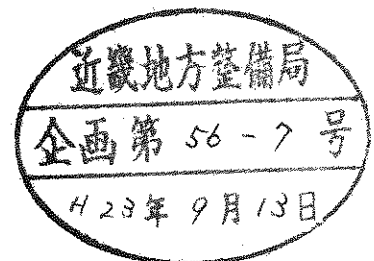 近畿地方整備局
企画第 56-7 号
H23年9月13日